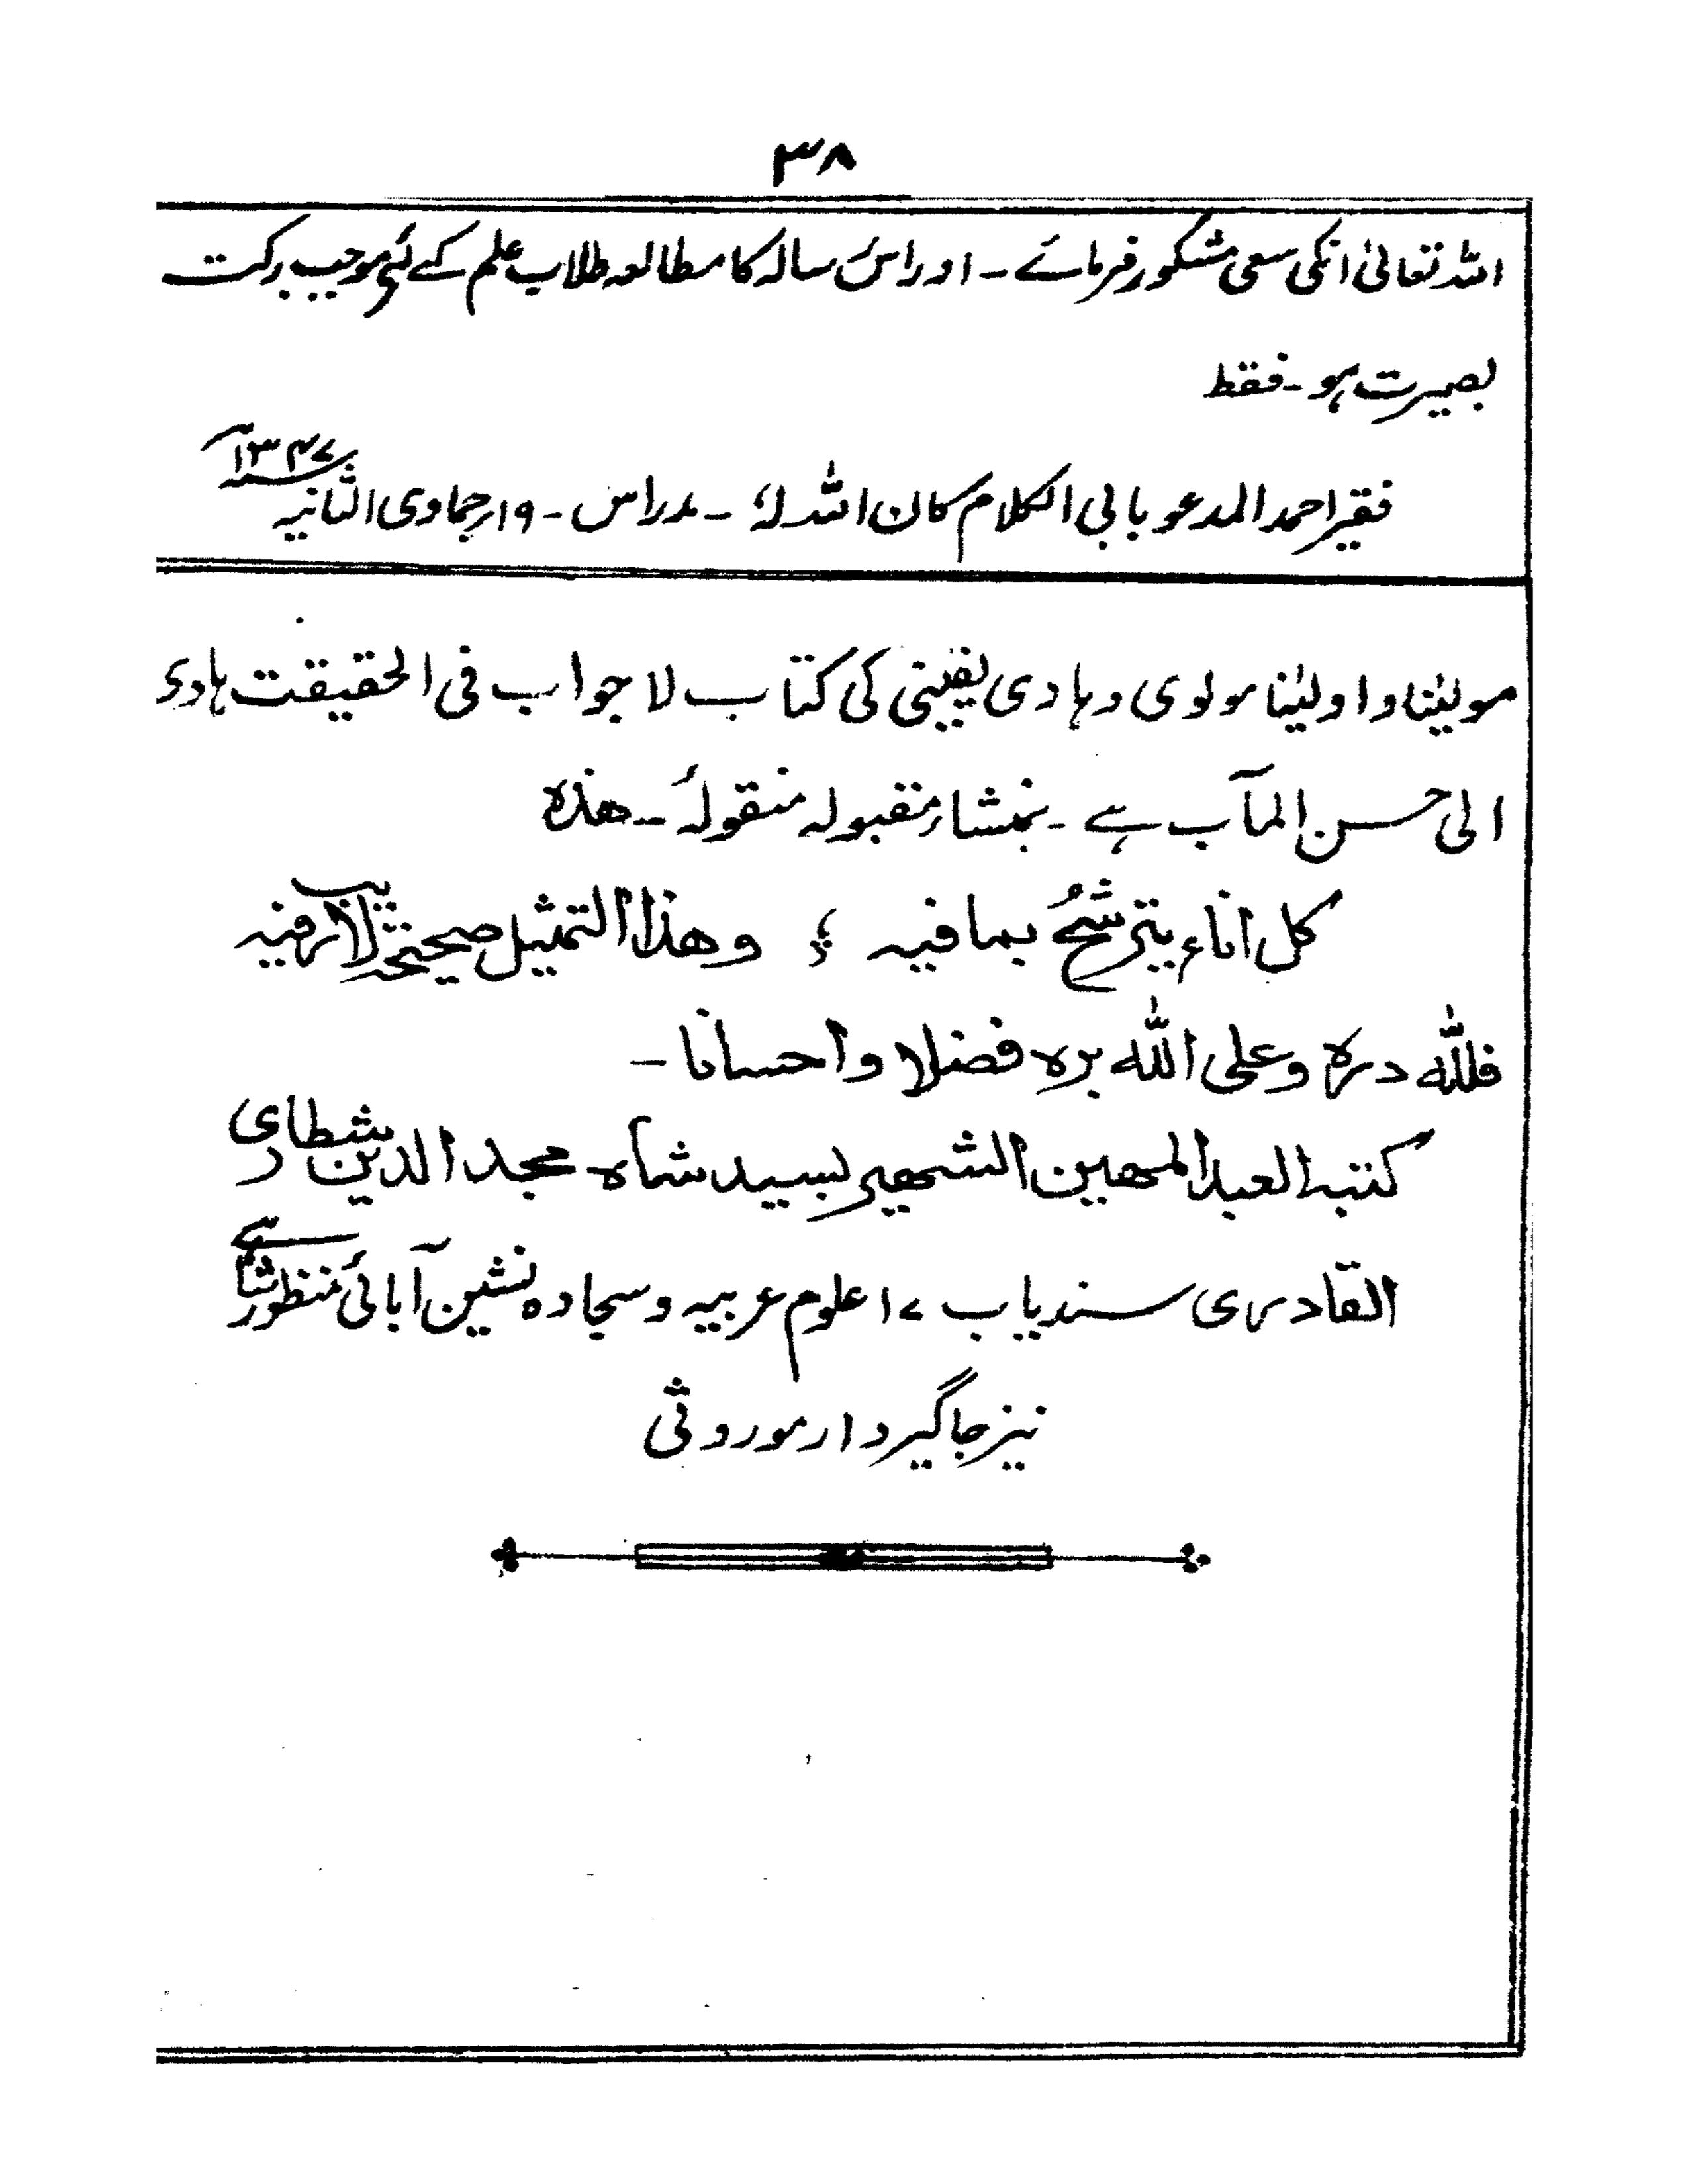 ۳۸
اللہ تعالیٰ انکی سعی مشکور فرمائے ۔ اور اس رسالہ کا مطالعہ طلاب علم کے لئے موجب برکت
بصیرت ہو ۔ فقط
فقیر احمد المدعو بابی الکلام کان اللہ لہٗ ۔ مدراس ۔ ۱۹ جمادی الثانیہ ۱۳۴۷
مولینا و اولینا مولوی وہادی یقینی کی کتاب لا جواب فی الحقیقت ہادی
الی حسن المآب ہے ۔ بمنشاء مقبولہ منقولہٗ ۔ ھذہ
کل اناء یترشحُ بما فیہ ؛ وھذا التمثیل صحیحۃ لاریب فیہ
فللّٰہ درہ وعلی اللّٰہ برہ فضلا واحسانا ۔
کتبہ العبد المھین الشھیر بسید شاہ مجد الدین شطاری
القادری سندیاب ۱۷ علوم عربیہ و سجادہ نشین آبائی منظور شاہی
نیز جاگیردار موروثی